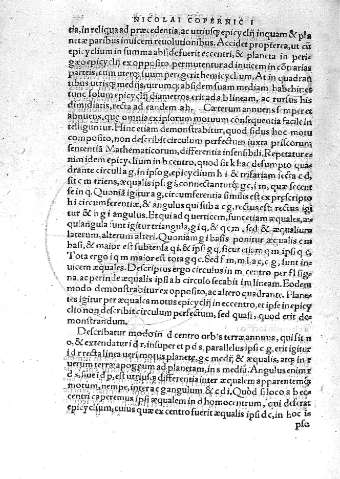 NICOLAI COPERNICI
tia, in reliqua ad præcedentia, ac utriusq; epicyclij inquam & pla
netæ paribus inuicem reuolutionibus. Accidet propterea, ut cū
epicyclium in summa abside fuerit eccentri, & planeta in peri-
gæo epicyclij ex opposito, permutentur ad inuicem in contrarias
parteis, cum uterq; suum peregerit hemicyclium. At in quadran
tibus utrisq; medijs, utrumq; absidem suam mediam habebit: et
tunc solum epicyclij diametros erit ad a b lineam, ac rursus his
dimidiatis, recta ad eandem a b. Cæterum annuens semper et
abnuens, quæ omnia ex ipsorum motuum consequentia facile in
telliguntur. Hinc etiam demonstrabitur, quod sidus hoc motu
composito, non describit circulum perfectum iuxta priscorum
sententiā Mathematicorum, differentia insensibili. Repetatur e
nim idem epicyclium in b centro, quod sit k l, ac desumpto quā
drante circuli a g, in ipso g, epicyclium h i & trifariam secta c d,
sit c m triens, æqualis ipsi g i, connectanturq; g c, i m, quæ secent
se in q. Quoniā igitur a g, circumferentia similis est ex præscripto
h i circumferentiæ, & angulus qui sub a c g, rectus est: rectus igi
tur & h g i angulus. Et qui ad q uerticem, sunt etiam æquales, æ-
quiangula sunt igitur triangula, g i q, & q c m, sed & æqualium
laterum, alterum alteri. Quoniam g i basis ponitur æqualis c m
basi, & maior est subtensa q i, & ipsi g q, sicut etiam q m, ipsi q c.
Tota ergo i q m maior est tota g q c. Sed f m, m l, a c, c g, sunt in-
uicem æquales. Descriptus ergo circulus in m centro per f l signa
ac perinde æqualis ipsi a b circulo secabit i m lineam. Eodem
modo demonstrabitur ex opposito, ac altero quadrante. Plane-
tes igitur per æquales motus epicyclij in eccentro, et ipse in epicy
clio non describit circulum perfectum, sed quasi, quod erit de-
monstrandum.
Describatur modo in d centro orbis terræ annuus, qui sit n
o, & extendatur i d r, insuper et p d s, parallelus ipsi c g, erit igitur
i d r recta linea ueri motus planetæ, g c medij, & æqualis, atq; in r
uerum terræ apogæum ad planetam, in s mediū. Angulus enim r
d s, siue i d p, est utriusq; differentia inter æqualem apparentemq;
motum, nempe, inter a c g angulum, & c d i. Quòd si loco a b ec-
centri caperemus ipsi æqualem in d homocentrum, qui deferat
epicyclium, cuius quæ ex centro fuerit æqualis ipsi d c, in hoc is
pso